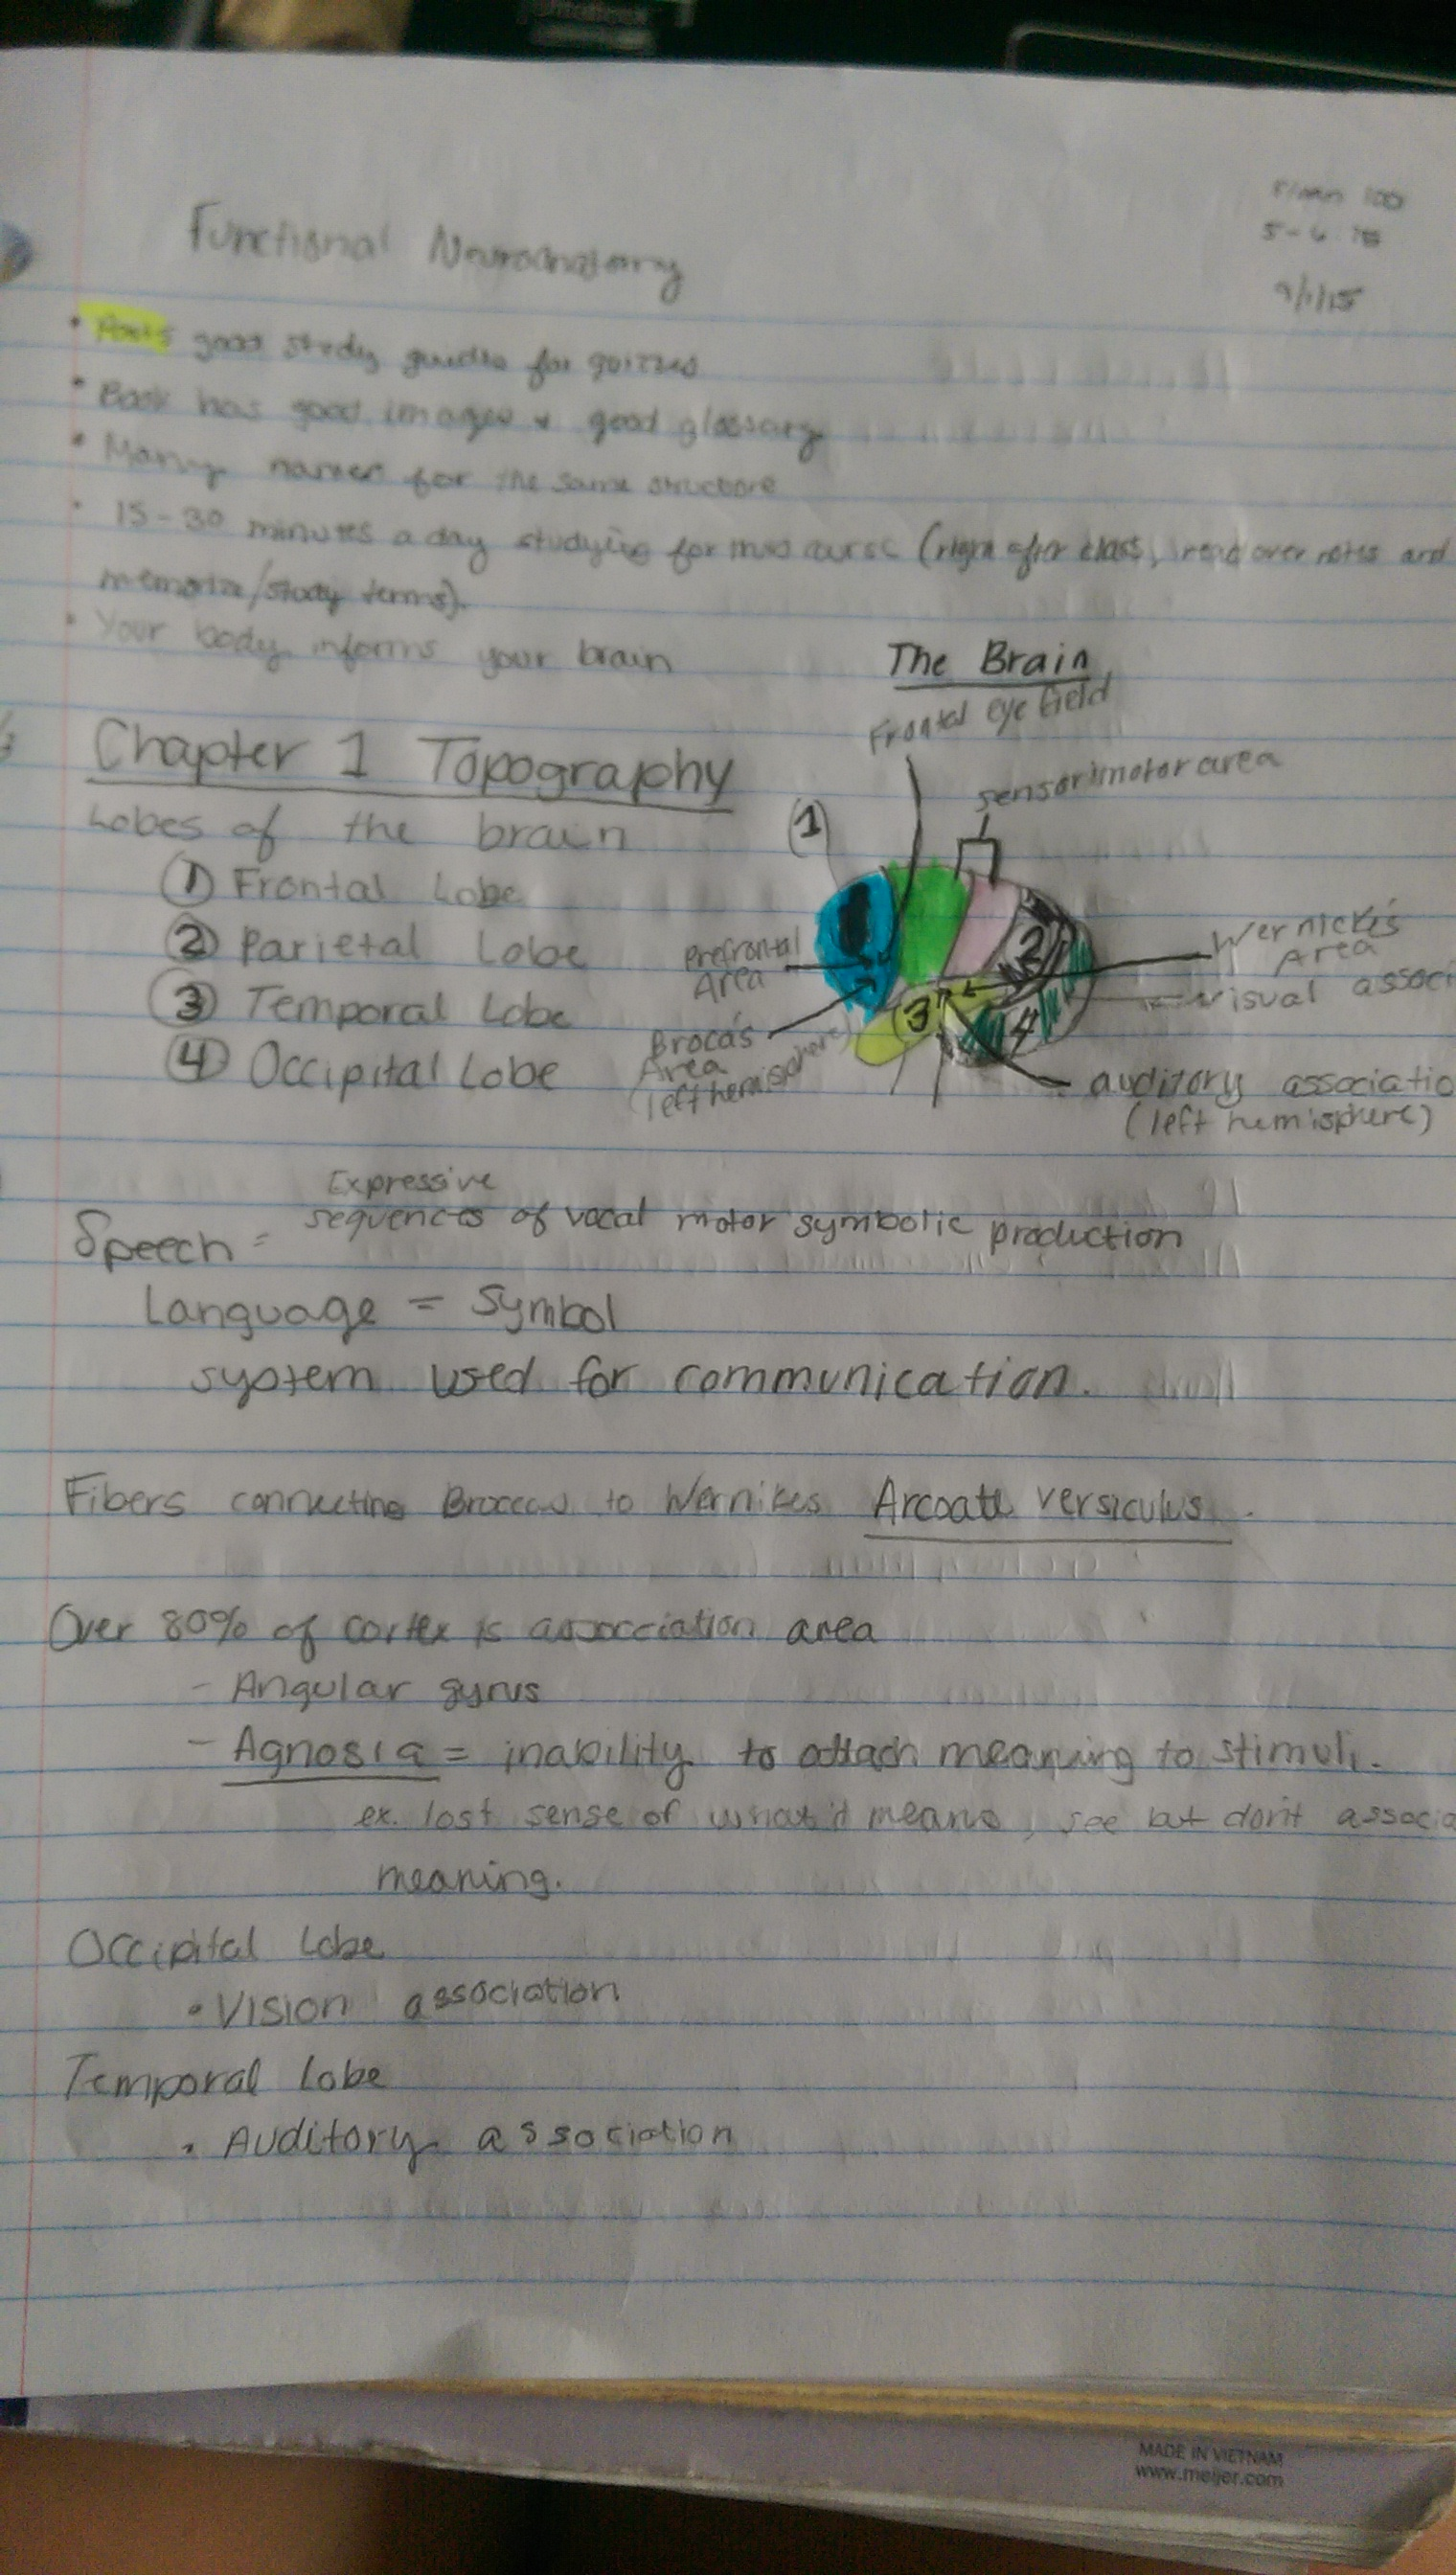 9/1/15
Functional Neuroanatomy
• good study guides for quizzes
• Book has good images & good glossary
• Many names for the same structure
• 15-30 minutes a day studying for this (right after class, read over notes and
memorize/study terms).
• Your body informs your brain
The Brain
Frontal eye field
Chapter 1 Topography
sensorimotor area
Lobes of the brain
(1)
① Frontal Lobe
② Parietal Lobe
③ Temporal Lobe
④ Occipital Lobe
2
3
4
Prefrontal
Area
Wernicke's
Area
visual associ
Broca's
Area
(left hemisphere)
auditory associatio
(left hemisphere)
Expressive
Speech = sequences of vocal motor symbolic production
Language = Symbol
system used for communication.
Fibers connecting to Wernikes Arcoate versiculus.
Over 80% of cortex is association area
- Angular gyrus
- Agnosia = inability to attach meaning to stimuli.
ex. lost sense of what it means, see but don't associa
meaning.
Occipital Lobe
• Vision association
Temporal Lobe
• Auditory association
MADE IN VIETNAM
www.meijer.com